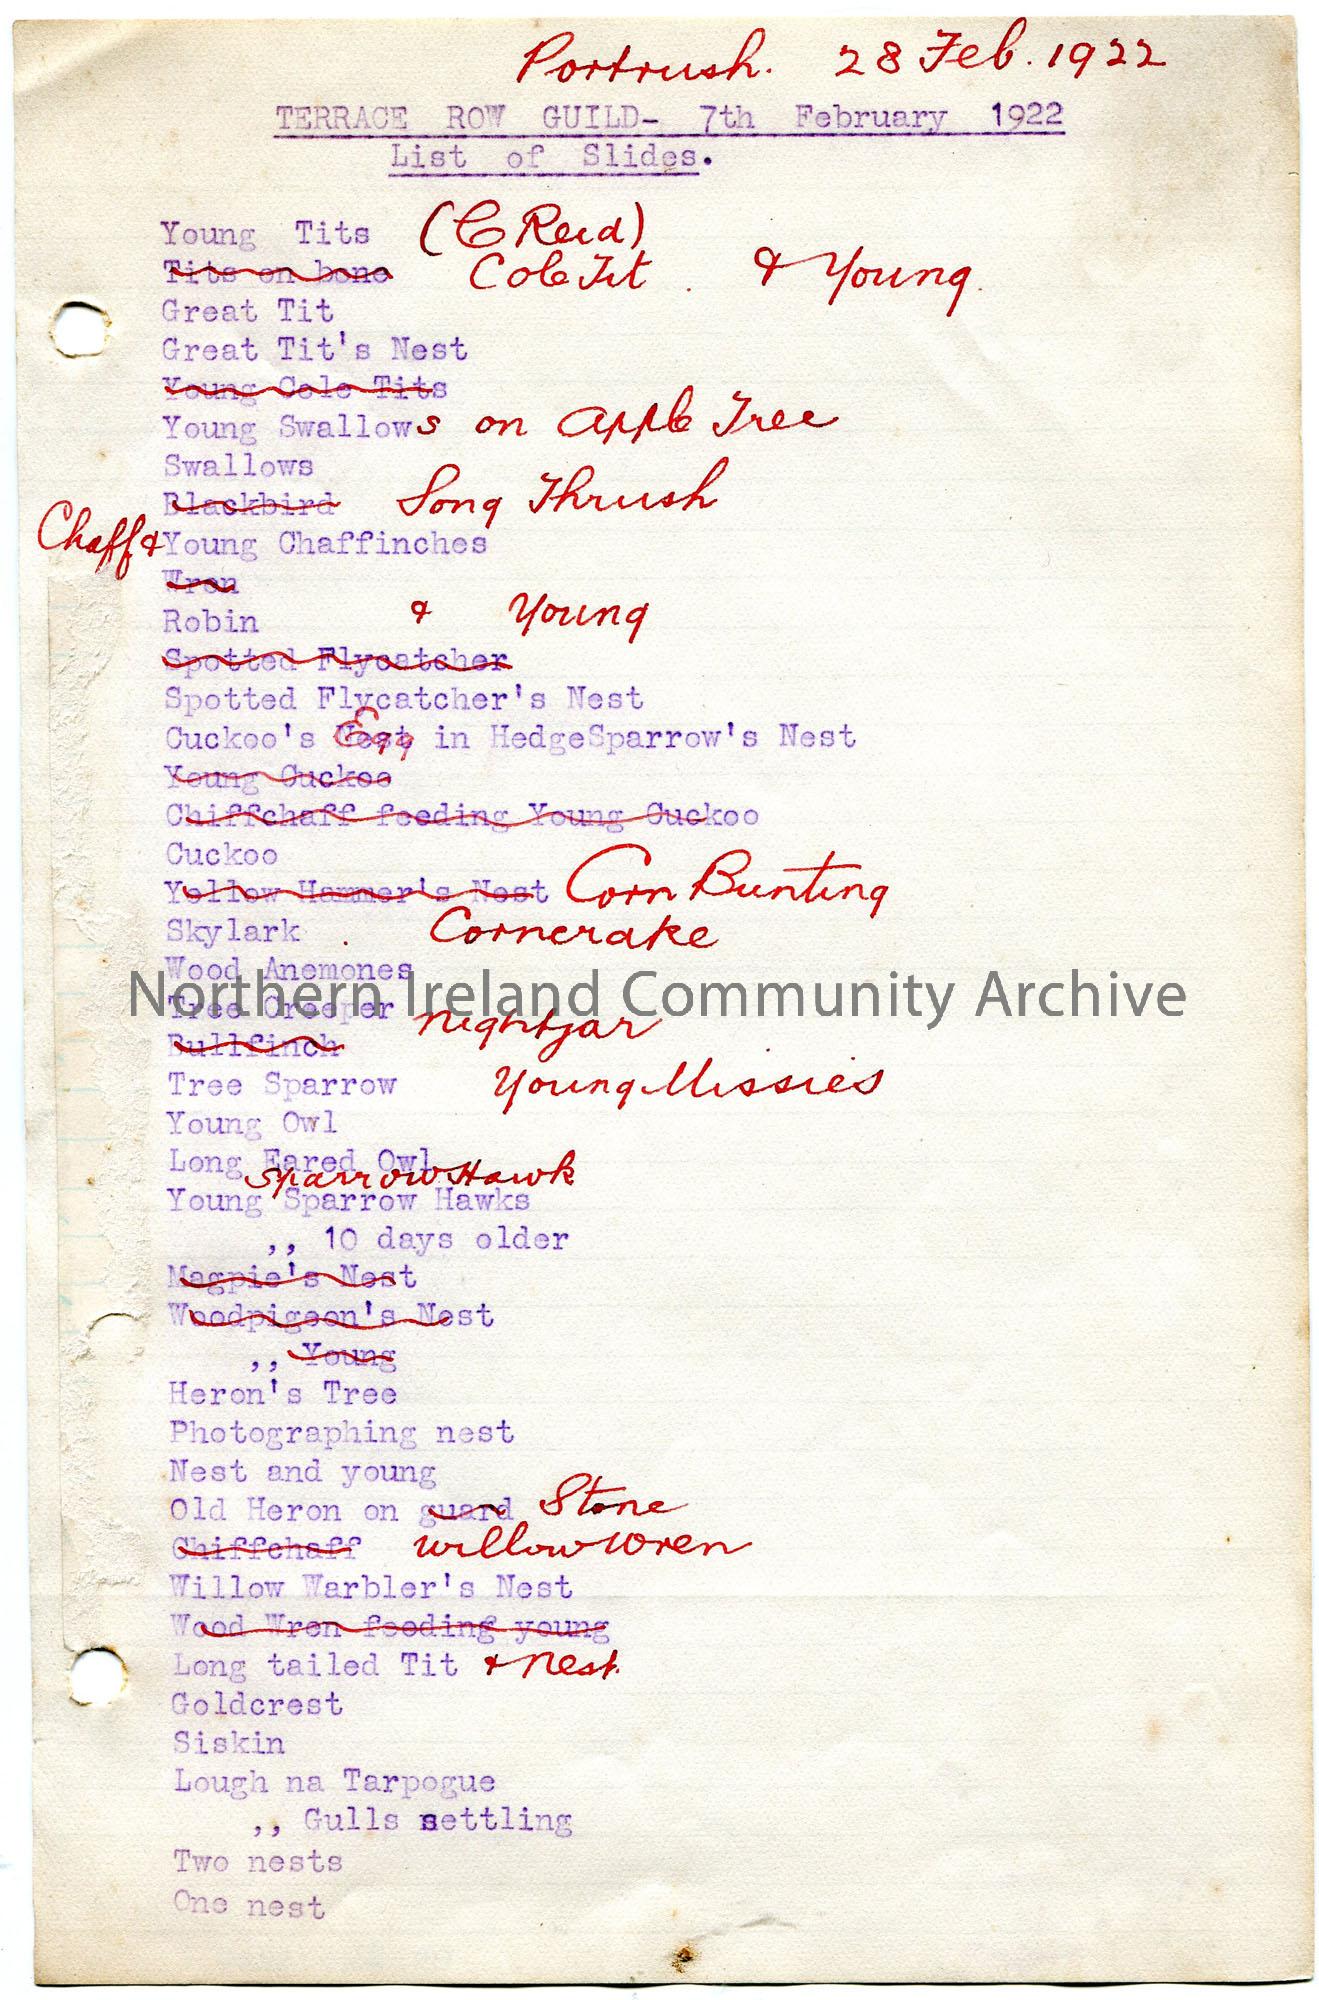 Portrush. 28 Feb. 1922
TERRACE ROW GUILD- 7th February 1922
List of Slides.
Young Tits (C Reid)
Tits on bone Cole Tit. & Young.
Great Tit
Great Tit's Nest
Young Cole Tits
Young Swallows on Apple Tree
Swallows
Blackbird Song Thrush
Chaff & Young Chaffinches
Wren
Robin & Young
Spotted Flycatcher
Spotted Flycatcher's Nest
Cuckoo's Nest Egg in HedgeSparrow's Nest
Young Cuckoo
Chiffchaff feeding Young Cuckoo
Cuckoo
Yellow Hammer's Nest Corn Bunting
Skylark . Corncrake
Wood Anemones
Northern Ireland Community Archive
Tree Creeper Nightjar
Bullfinch
Tree Sparrow Young Missies
Young Owl
Long Eared Owl
Sparrow Hawk
Young Sparrow Hawks
,, 10 days older
Magpie's Nest
Woodpigeon's Nest
,, Young
Heron's Tree
Photographing nest
Nest and young
Old Heron on guard Stone
Chiffchaff Willow Wren
Willow Warbler's Nest
Wood Wren feeding young
Long tailed Tit & Nest.
Goldcrest
Siskin
Lough na Tarpogue
,, Gulls settling
Two nests
One nest